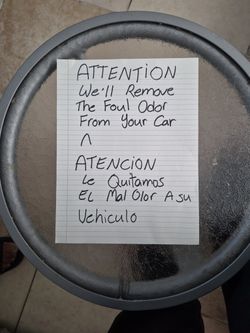 ATTENTION
We'll Remove
The Foul Odor
From Your Car
ATENCION
Le Quitamos
EL Mal Olor A su
Vehiculo